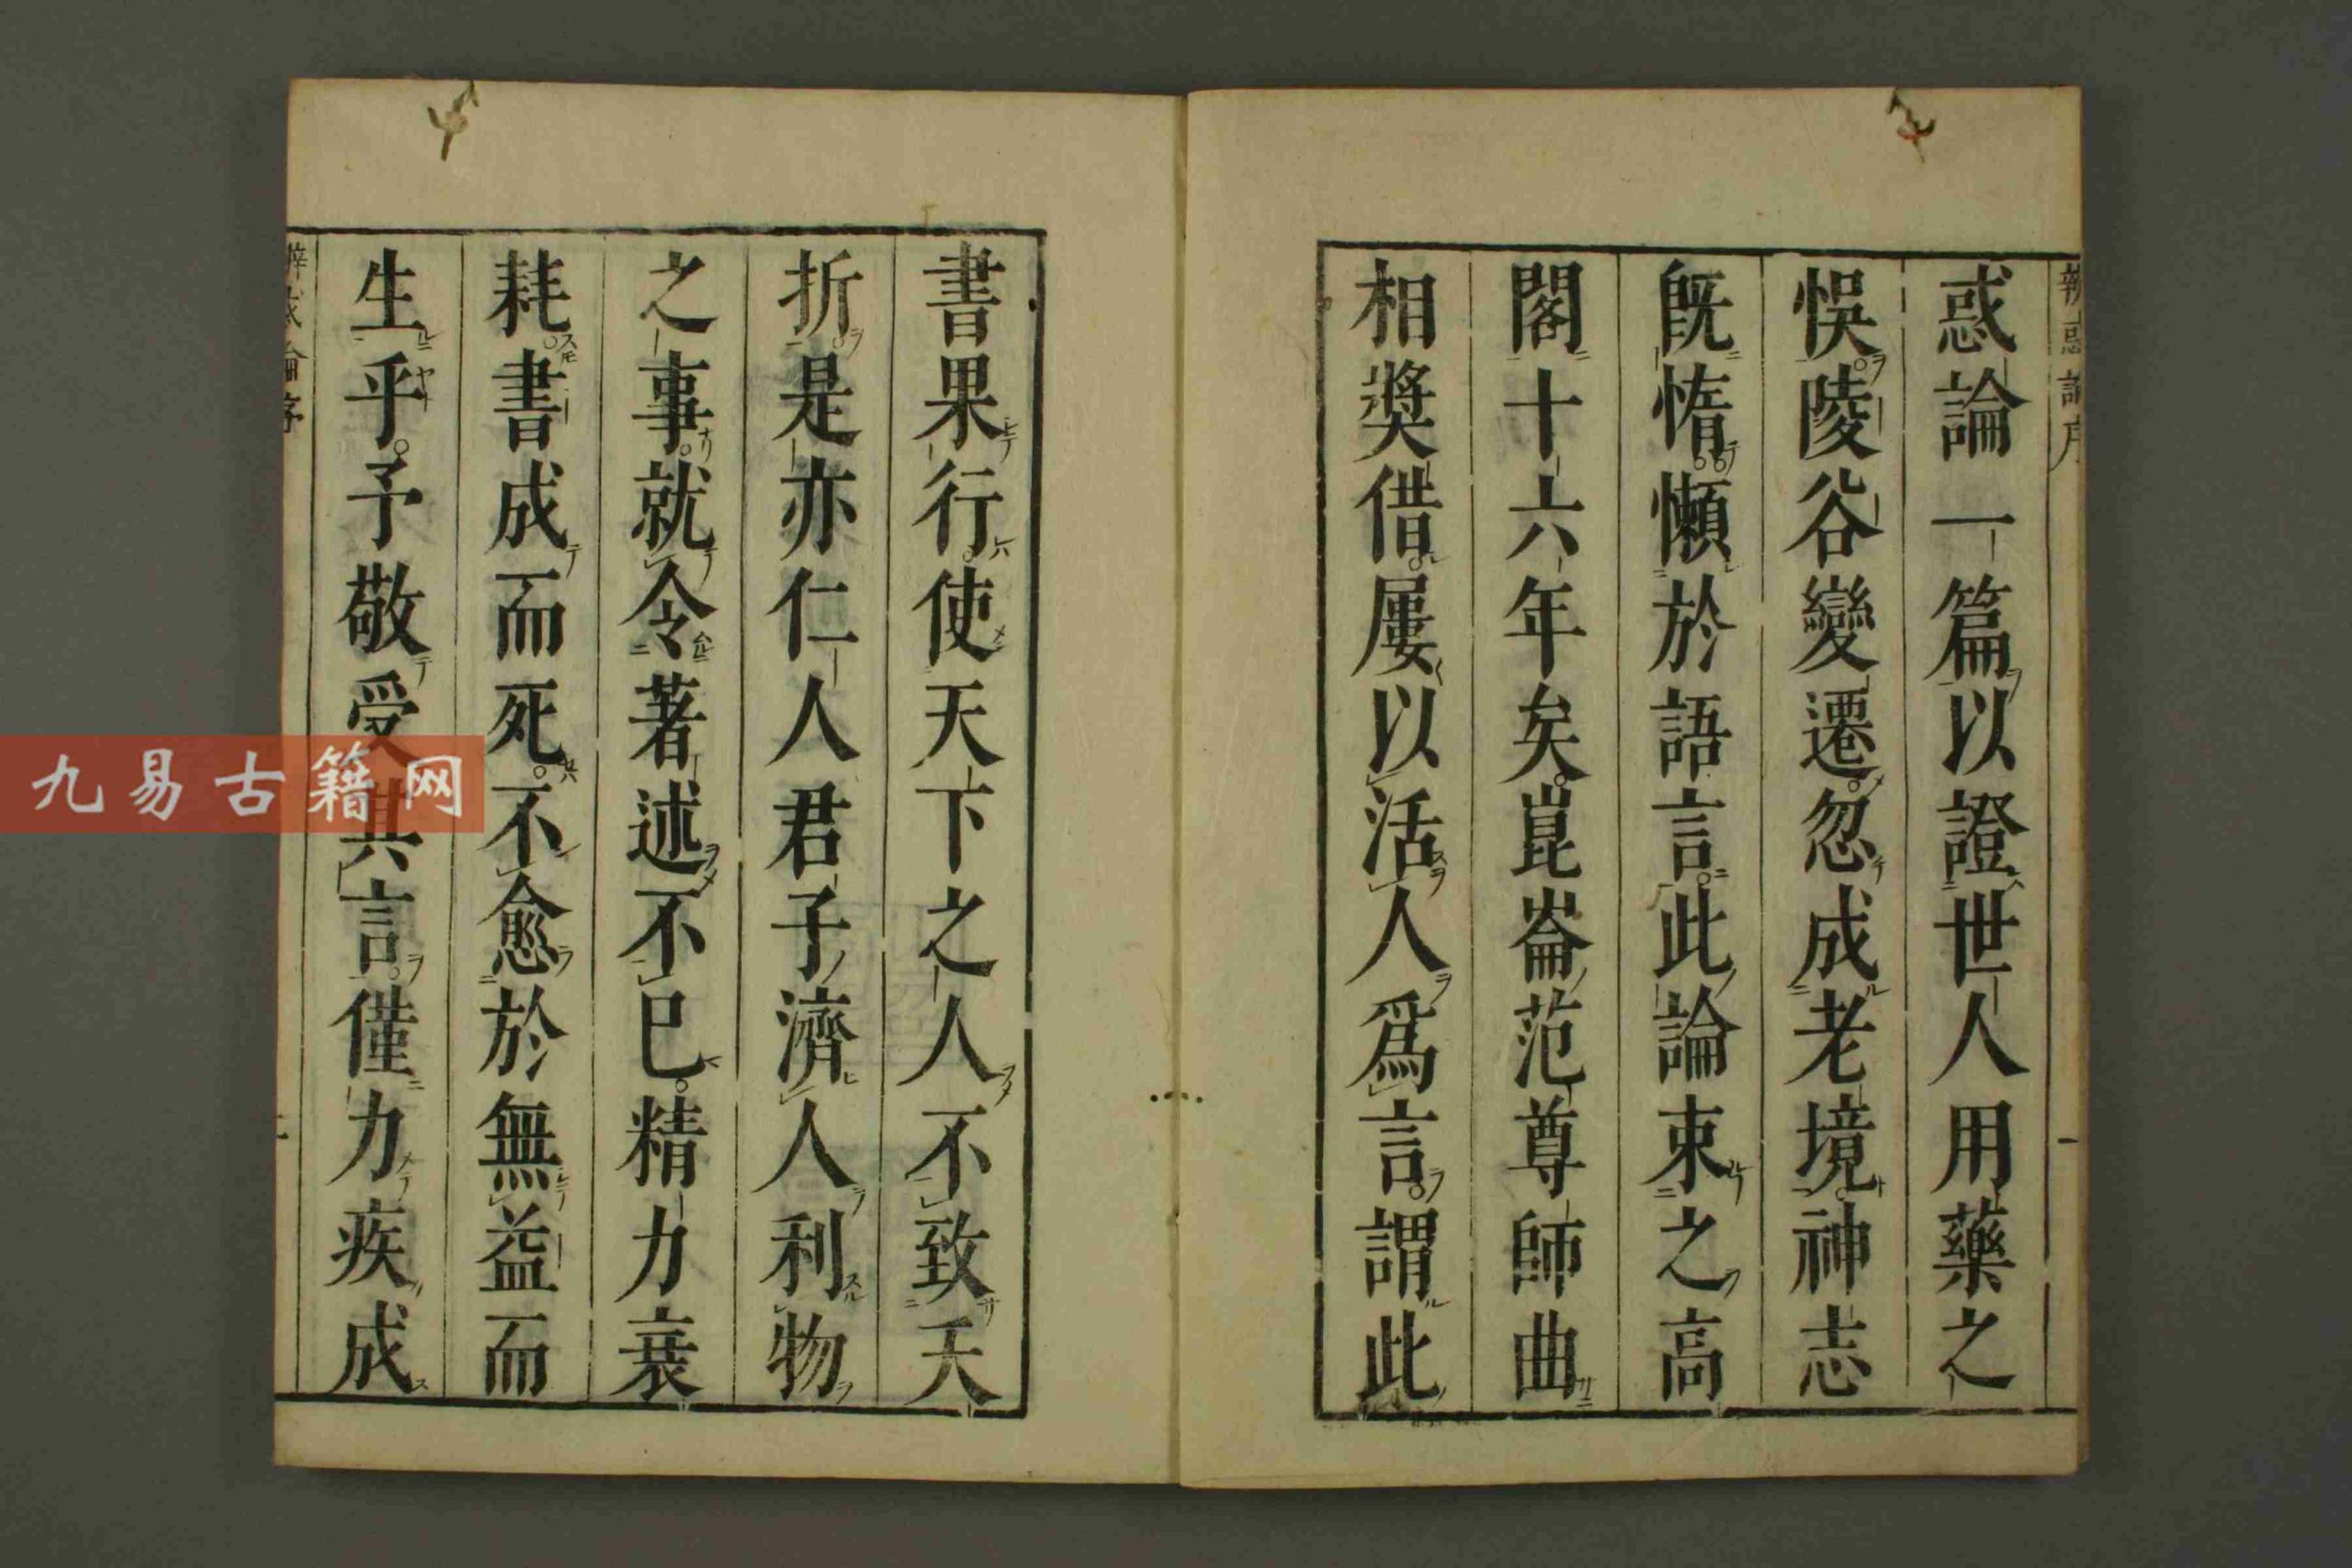 惑論一篇以證世人用藥之
悞陵谷變遷忽成老境神志
旣惰懶於語言此論束之高
閣十六年矣崑崙范尊師曲
相奬借屢以活人爲言謂此
書果行使天下之人不致夭
折是亦仁人君子濟人利物
之事就令著述不已精力衰
耗書成而死不愈於無益而
生乎予敬受其言僅力疾成
九易古籍网